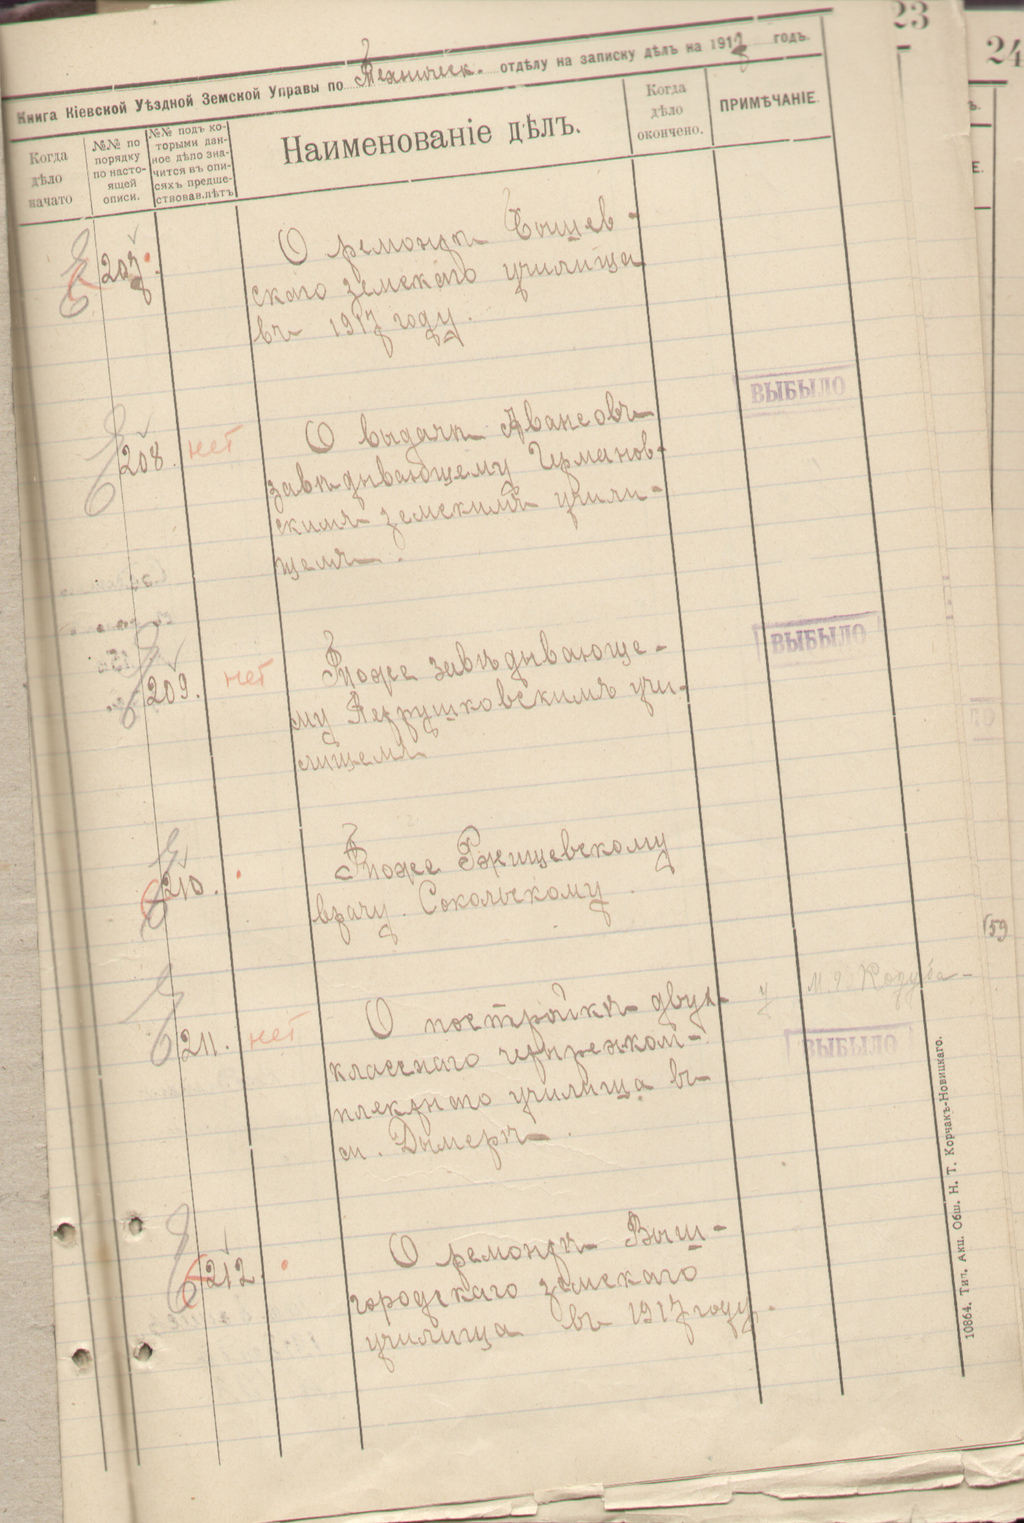 23
24
Книга Кіевской Уѣздной Земской Управы по Техническ. отдѣлу на записку дѣлъ на 1917 годъ.
Когда дѣло начато
№№ по порядку по настоящей описи.
№№ подъ ко-
торыми дан-
ное дѣло зна-
чится въ опи-
сяхъ предше-
ствовав.лѣтъ
Наименованіе дѣлъ.
Когда дѣло окончено.
ПРИМѢЧАНІЕ.
207.
О ремонтѣ Бышев-
скаго земскаго училища
въ 1917 году.
ВЫБЫЛО
208. нет
О выдачѣ Авансовъ
завѣдывающему Гурманов-
скимъ земскимъ учили-
щемъ.
ВЫБЫЛО
209. нет
Тоже завѣдывающе-
му Петрушковскимъ учи-
лищемъ
210.
Тоже Ржищевскому
врачу Сокольскому.
59
211. нет
О постройкѣ двух-
класснаго четырехком-
плектнаго училища въ
м. Дымерѣ.
ВЫБЫЛО
212
О ремонтѣ Выш-
городскаго земскаго
училища въ 1917 году.
10864. Тип. Акц. Общ. Н. Т. Корчакъ-Новицкаго.